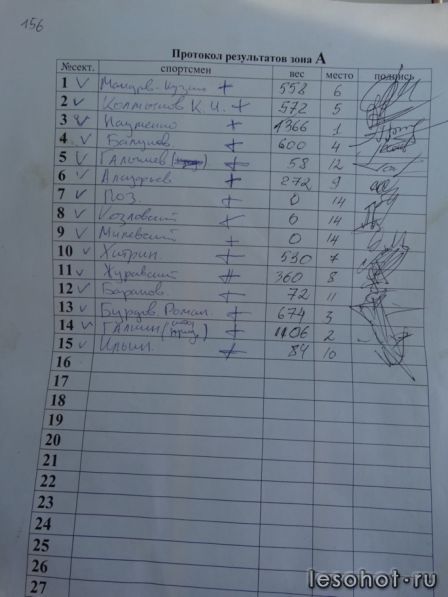 156
Протокол результатов зона А
№сект. спортсмен вес место подпись
1 + 558 6
2 К. И. + 572 5
3 Науменко + 1366 1
4 + 600 4
5 + 58 12
6 + 272 9
7 Поз + 0 14
8 Козловский + 0 14
9 Милевский + 0 14
10 Хитрин + 530 7
11 Журавский + 360 8
12 Баранов + 72 11
13 Бурдов Роман + 674 3
14 Галкин + 1106 2
15 Ильин + 84 10
16
17
18
19
20
21
22
23
24
25
26
27
lesohot.ru